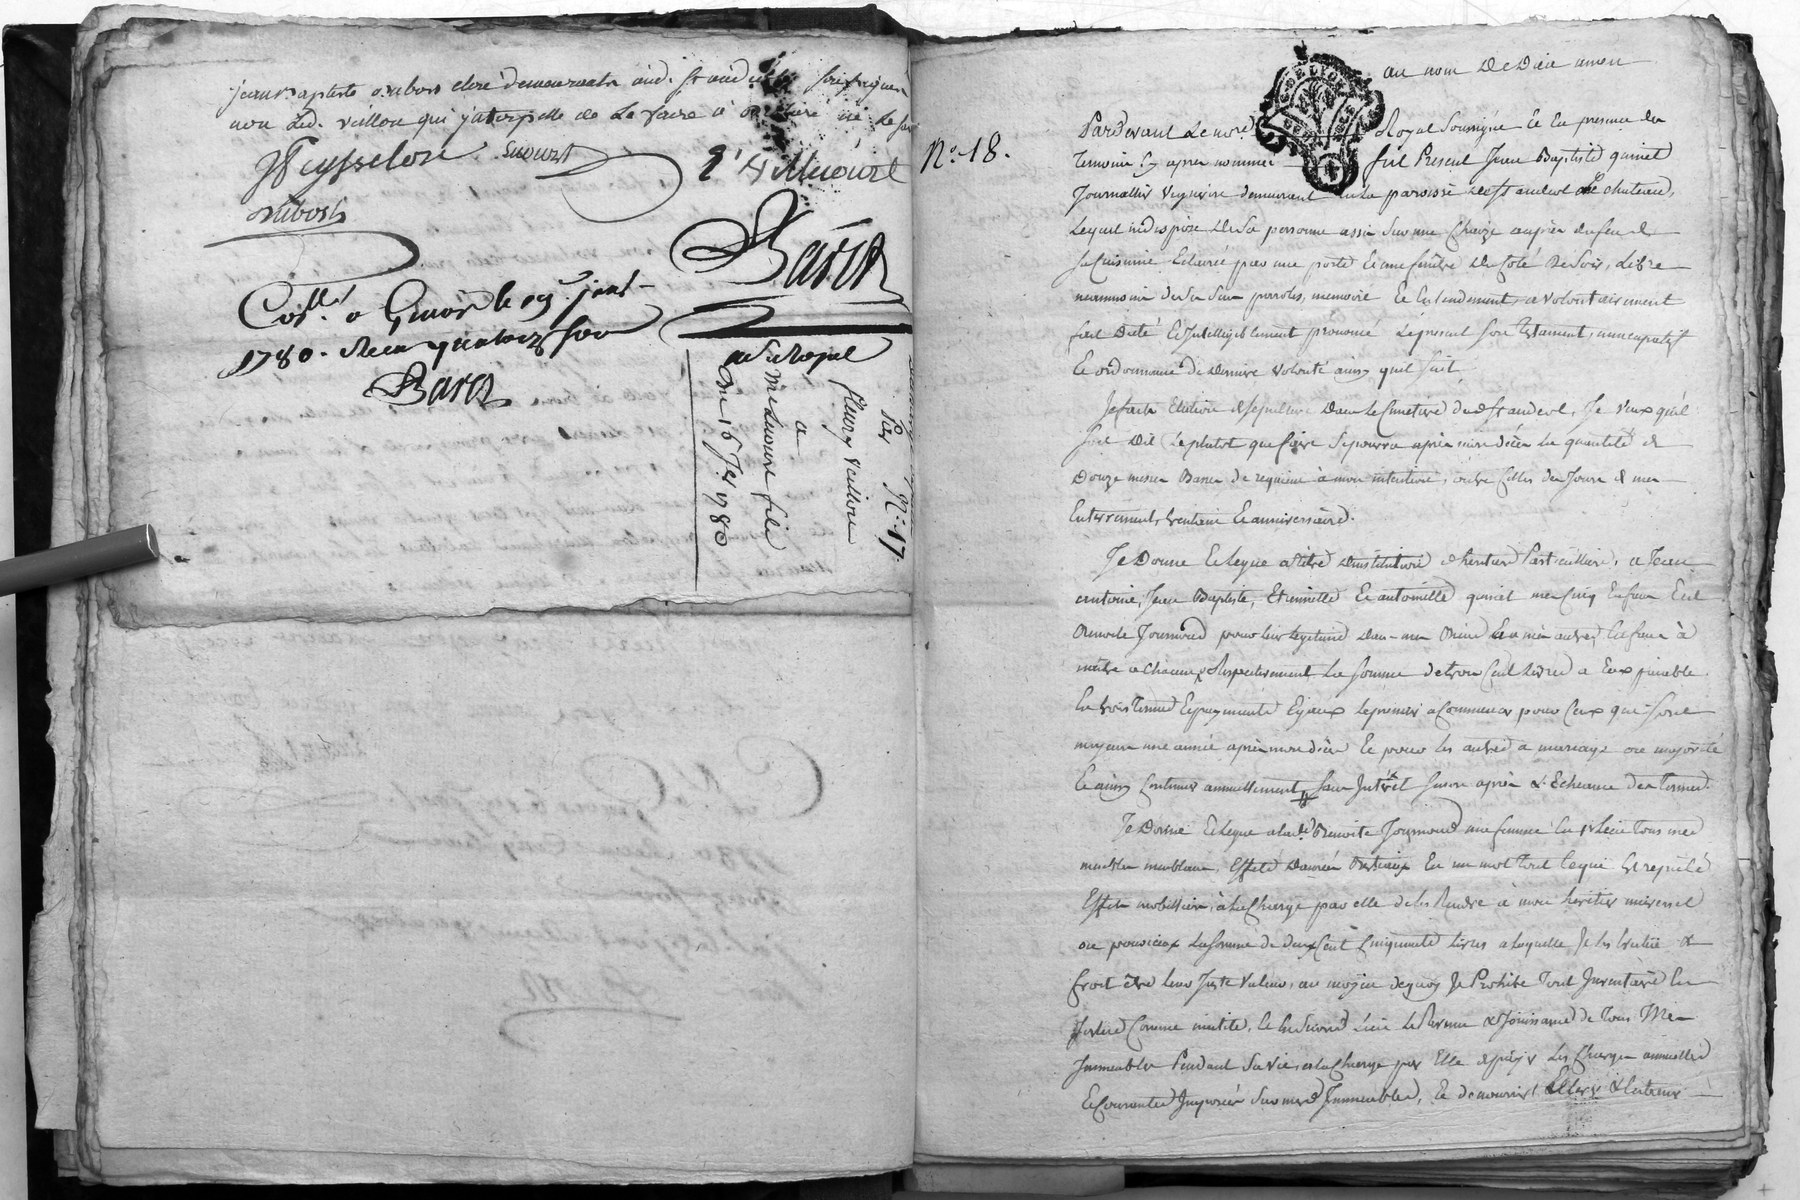 jean Baptiste dubost clerc demeurants aud. St andeol soussignés
non led. veillon qui
JPeysselon ducourt
dubost
Baret
Coll.é a Givors le 19e janv.
1780. Reçu quatorze sous
Baret
du Royal
fleury veillon
a
Me ducourt fils
Du 16 Jer 1780
Par N.o 17.
N.o 18.
au nom De Dieu amen
Pardevant Le no.re Royal Soussigné Et En presence des
Temoins Cy apres nommés fut Present Jean Baptiste guinet
Journallier Vigneron demeurant en La paroisse de St andeol Le chateau,
Lequel indisposé De Sa personne assis Sur une Chaize auprès du feu de
sa Cuisine Eclairée par une porte Et une fenêtre De Coté De Soir, Libre
neanmoins de Ses Sens paroles, memoire Et Entendement, a volontairement
fait Dicté Et Intelligiblement prononcé Le present Son Testament, nuncupatif
Et ordonnance De Derniere volonté ainsy quil suit
Je fais Election de sepulture Dans Le Cimetiere dud St andeol, Je veux qu'il
soit Dit Le plutot que faire Se pourra après mon décès La quantité de
Douze messes Basses de requiem à mon intention, outre Celles des Jours de mes
Enterrement, trentaine Et anniversaire.
Je Donne Et Legue a titre D'institution d'heritiers Particulliers, a Jean
antoine, Jean Baptiste, Etiennette Et antoinette guinet mes Cinq Enfans Et de
Benoite Journoud pour leur Legitime Dans mes Biens Et a mes autres Enfans à
naitre a Chacun Respectivement La Somme de trois Cent Livres a Eux païable
En trois Termes Et payements Egaux Le premier a Commencer pour Ceux qui Sont
majeurs une année après mon décès Et pour les autres a mariage ou majorité
Et ainsy Continuer annuellement Sans Intérêt Sinon après L'Echeance des termes.
Je Donne Et Legue a lad.e Benoite Journoud ma femme tous mes
meubles meublans, Effets Denrées Bestiaux En un mot Tout Ce qui Est reputé
Effets mobilliers, à La Charge par elle de les Rendre à mon heritier universel
ou pour iceux La Somme de deux Cent Cinquante Livres a Laquelle Je les Evalue
être Leur Juste Valeur, au moyen de quoy Je Prohibe Tout Inventaire En
Justice Comme inutile, Jouissance de Tous Mes
Immeubles Pendant Sa vie, a La Charge par Elle de païer Les Charges annuelles
Et Courantes Imposées Sur mesd Immeubles, Et de nourrir, Elever & Entretenir